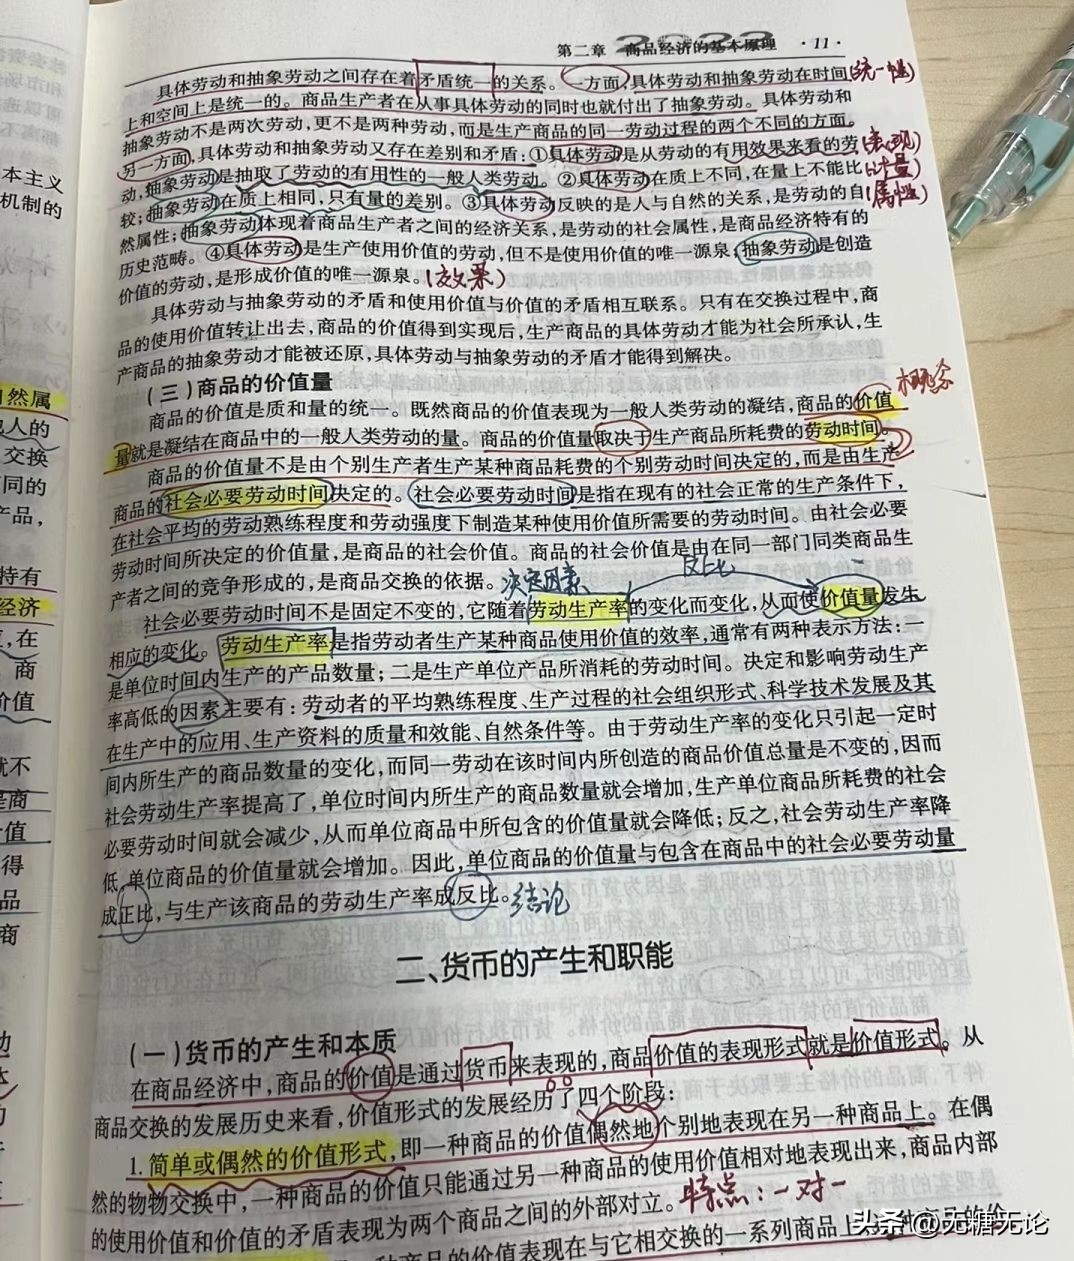 2023
第二章 商品经济的基本原理 ·11·
具体劳动和抽象劳动之间存在着矛盾统一的关系。一方面,具体劳动和抽象劳动在时间(统一性)
上和空间上是统一的。商品生产者在从事具体劳动的同时也就付出了抽象劳动。具体劳动和
抽象劳动不是两次劳动,更不是两种劳动,而是生产商品的同一劳动过程的两个不同的方面。
另一方面,具体劳动和抽象劳动又存在差别和矛盾:①具体劳动是从劳动的有用效果来看的劳(表现)
动,抽象劳动是抽取了劳动的有用性的一般人类劳动。②具体劳动在质上不同,在量上不能比(计量)
较;抽象劳动在质上相同,只有量的差别。③具体劳动反映的是人与自然的关系,是劳动的自(属性)
然属性;抽象劳动体现着商品生产者之间的经济关系,是劳动的社会属性,是商品经济特有的
历史范畴。④具体劳动是生产使用价值的劳动,但不是使用价值的唯一源泉,抽象劳动是创造
价值的劳动,是形成价值的唯一源泉。(效果)
具体劳动与抽象劳动的矛盾和使用价值与价值的矛盾相互联系。只有在交换过程中,商
品的使用价值转让出去,商品的价值得到实现后,生产商品的具体劳动才能为社会所承认,生
产商品的抽象劳动才能被还原,具体劳动与抽象劳动的矛盾才能得到解决。
(三)商品的价值量
概念
商品的价值是质和量的统一。既然商品的价值表现为一般人类劳动的凝结,商品的价值
量就是凝结在商品中的一般人类劳动的量。商品的价值量取决于生产商品所耗费的劳动时间。
商品的价值量不是由个别生产者生产某种商品耗费的个别劳动时间决定的,而是由生产
商品的社会必要劳动时间决定的。社会必要劳动时间是指在现有的社会正常的生产条件下,
在社会平均的劳动熟练程度和劳动强度下制造某种使用价值所需要的劳动时间。由社会必要
劳动时间所决定的价值量,是商品的社会价值。商品的社会价值是由在同一部门同类商品生
产者之间的竞争形成的,是商品交换的依据。 决定因素 反比
社会必要劳动时间不是固定不变的,它随着劳动生产率的变化而变化,从而使价值量发生
相应的变化。劳动生产率是指劳动者生产某种商品使用价值的效率,通常有两种表示方法:一
是单位时间内生产的产品数量;二是生产单位产品所消耗的劳动时间。决定和影响劳动生产
率高低的因素主要有:劳动者的平均熟练程度、生产过程的社会组织形式、科学技术发展及其
在生产中的应用、生产资料的质量和效能、自然条件等。由于劳动生产率的变化只引起一定时
间内所生产的商品数量的变化,而同一劳动在该时间内所创造的商品价值总量是不变的,因而
社会劳动生产率提高了,单位时间内所生产的商品数量就会增加,生产单位商品所耗费的社会
必要劳动时间就会减少,从而单位商品中所包含的价值量就会降低;反之,社会劳动生产率降
低,单位商品的价值量就会增加。因此,单位商品的价值量与包含在商品中的社会必要劳动量
成正比,与生产该商品的劳动生产率成反比。 结论
二、货币的产生和职能
(一)货币的产生和本质
在商品经济中,商品的价值是通过货币来表现的,商品价值的表现形式就是价值形式。从
商品交换的发展历史来看,价值形式的发展经历了四个阶段:
1.简单或偶然的价值形式,即一种商品的价值偶然地个别地表现在另一种商品上。在偶
然的物物交换中,一种商品的价值只能通过另一种商品的使用价值相对地表现出来,商品内部
的使用价值和价值的矛盾表现为两个商品之间的外部对立。 特点:一对一
种商品的价值表现在与它相交换的一系列商品上
头条 @无糖无论
本主义
机制的
然属
人的
交换
同的
产品,
持有
经济
,在
商
价值
就不
是商
价值
得
品
商